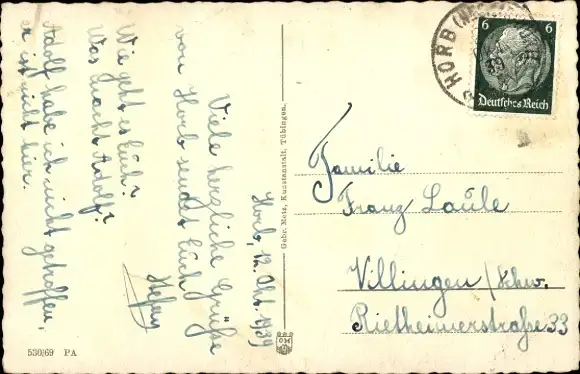 Horb, 12. Okt. 1939
Viele herzliche Grüße
von Horb sendet Euch
Stefan
Wie geht es Euch?
Was macht Adolf?
Adolf habe ich nicht getroffen,
er ist nicht hier.
Gebr. Metz, Kunstanstalt, Tübingen.
530/69 PA
HORB
6 6
Deutsches Reich
Familie
Franz Laule
Villingen/Schw.
Rietheimerstraße 33